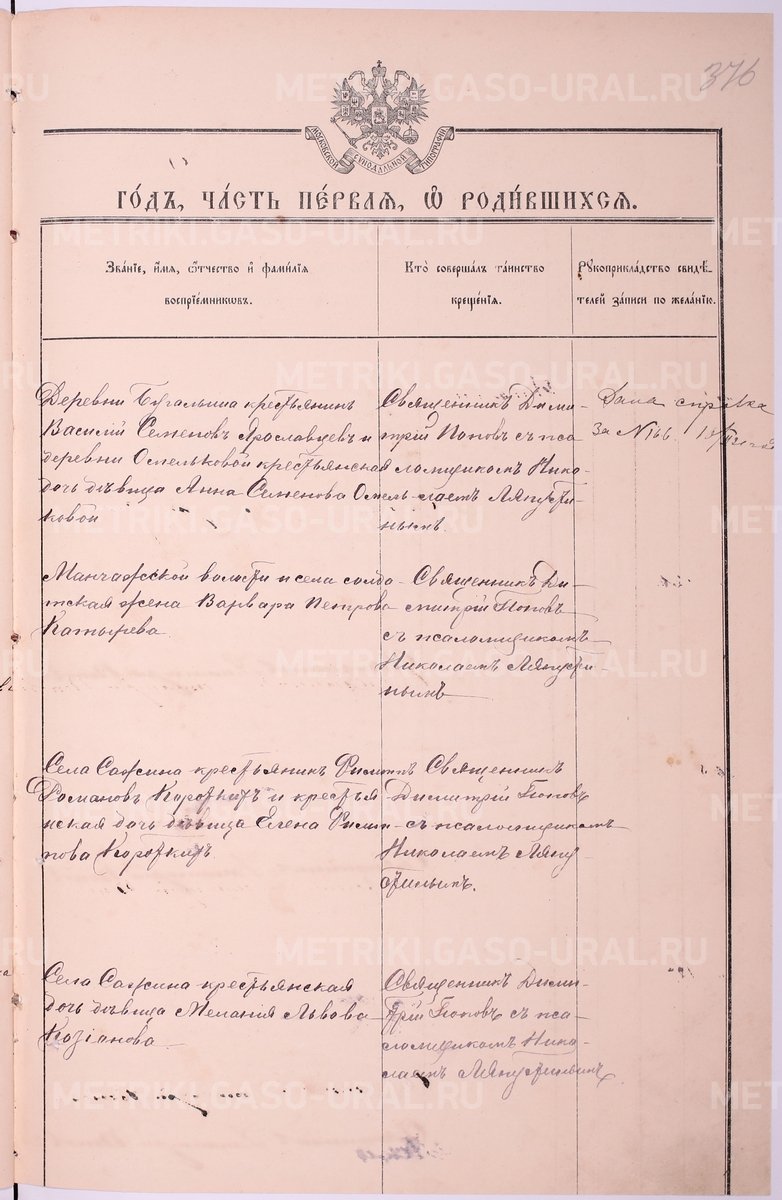 376
МОСКОВСКОЙ СѴНОДАЛЬНОЙ ТИПОГРАФІИ
ГО́ДЪ, ЧА́СТЬ ПЕ́РВАЯ, Ѡ РОДИ́ВШИХСЯ.
Зва́нїе, и́мя, ѻ҆́тчество и҆ фами́лїя
воспрїе́мникѡвъ.
Кто̀ соверша́лъ та́инство
креще́нїя.
Рꙋкоприкла́дство свидѣ́-
телей за́писи по жела́нїю.
Деревни Бугалыша крестьянинъ
Василій Семеновъ Ярославцевъ и
деревни Омельковой крестьянская
дочь дѣвица Анна Семенова Омель-
ковой
Священникъ Дими-
трій Поповъ съ пса
ломщикомъ Нико-
лаемъ Ляпусти-
нымъ.
Дана справка
за № 166.
Манчажской волости и села солда-
тская жена Варвара Петрова
Катырева.
Священникъ Ди-
митрій Поповъ
съ псаломщикомъ
Николаемъ Ляпусти-
нымъ
Села Сажина крестьянинъ Филиппъ
Романовъ Короткихъ и крестья
нская дочь дѣвица Елена Филип-
пова Короткихъ
Священникъ
Димитрій Поповъ
съ псаломщикомъ
Николаемъ Ляпу-
стинымъ.
Села Сажина крестьянская
дочь дѣвица Меланія Львова
Козіонова
Священникъ Дими-
трій Поповъ съ пса-
ломщикомъ Нико-
лаемъ Ляпустинымъ
METRIKI.GASO-URAL.RU